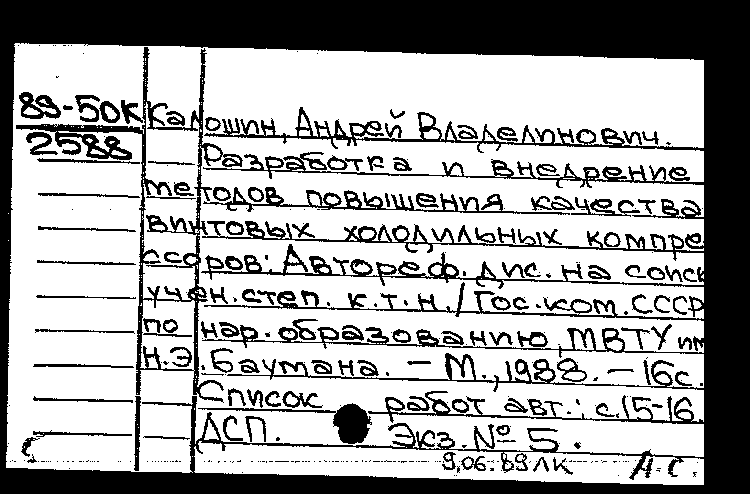 89-50К
2588
Калошин, Андрей Владиленович.
Разработка и внедрение
методов повышения качества
винтовых холодильных компре
ссоров: Автореф. дис. на соиск
учен. степ. к.т.н./Гос.ком.СССР
по нар. образованию, МВТУ им
Н.Э. Баумана. - М., 1988. - 16с.
Список работ авт.: с.15-16.
ДСП. Экз. № 5.
9.06.89 ЛК А.С.